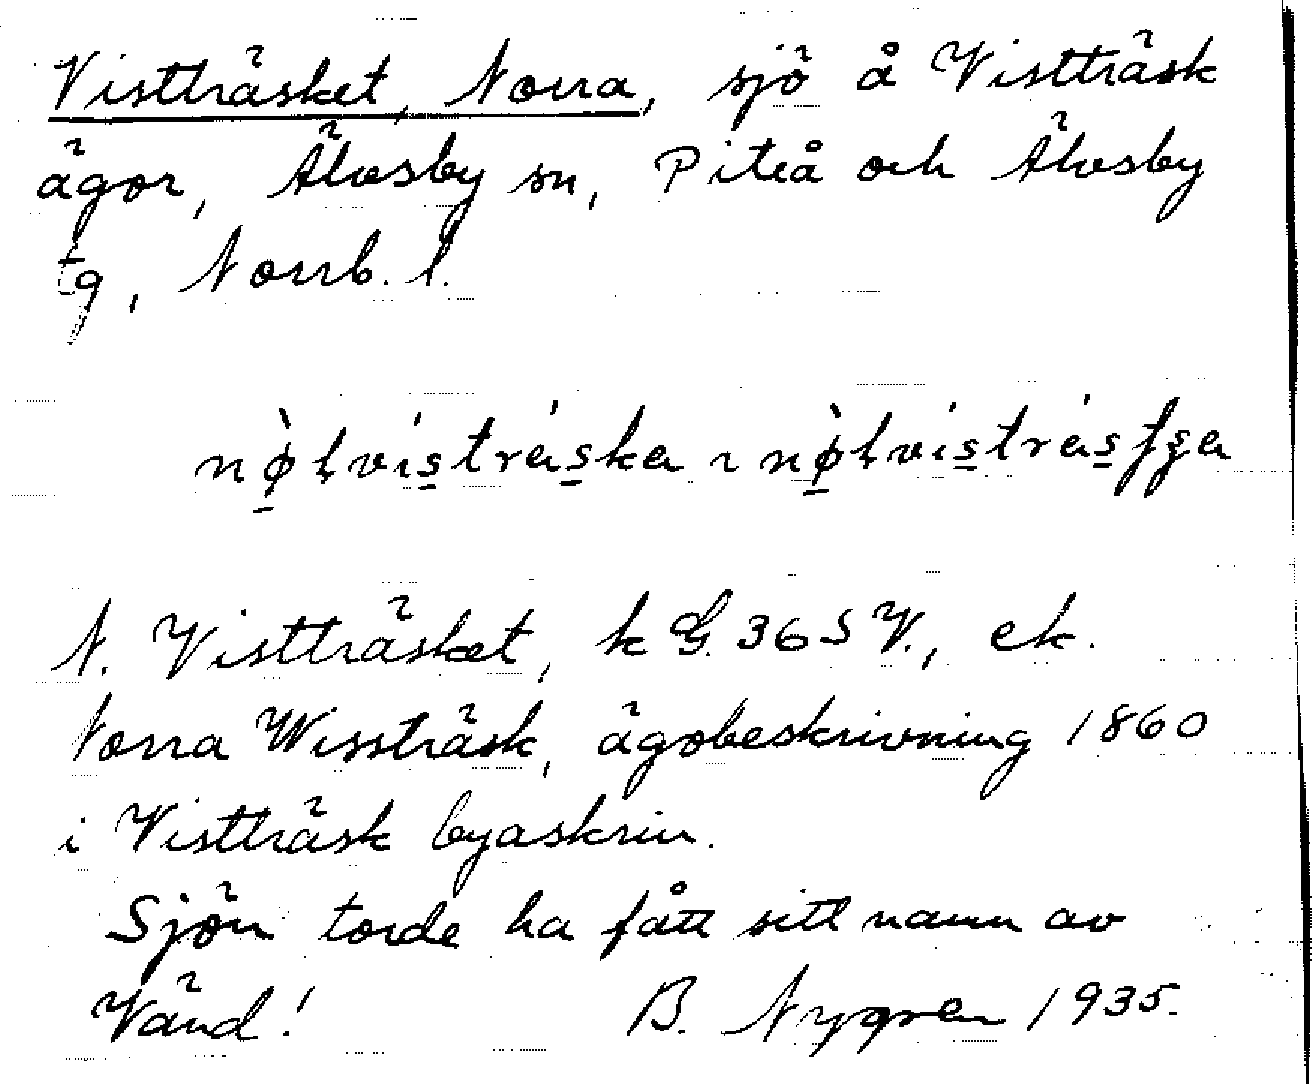 Vistträsket, Norra, sjö å Vistträsk
ägor, Älvsby sn, Piteå och Älvsby
tg, Norrb. l.
N. Vistträsket, k G. 36 S V., ek.
Norra Wissträsk, ägobeskrivning 1860
i Vistträsk byaskrin.
Sjön torde ha fått sitt namn av
Vänd! B. Nygren 1935.